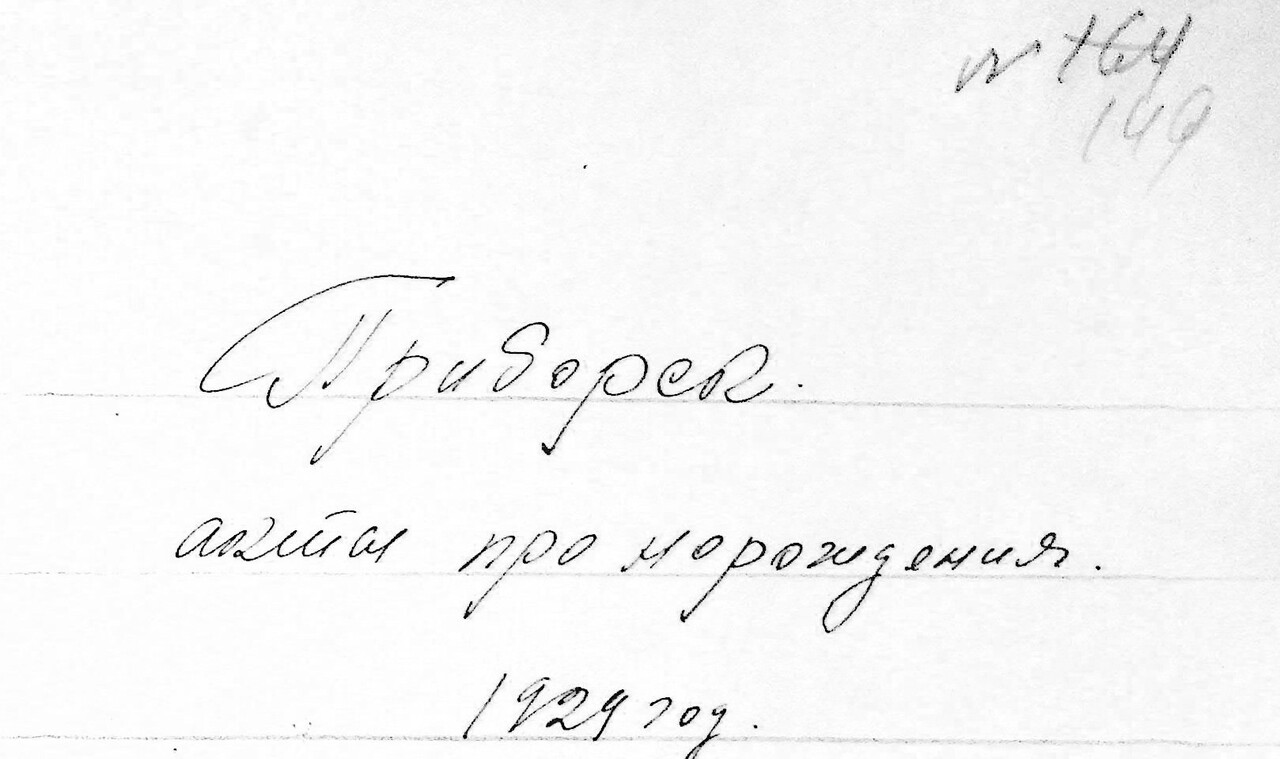 164
149
Приборск.
акты про нарождения.
1929 год.